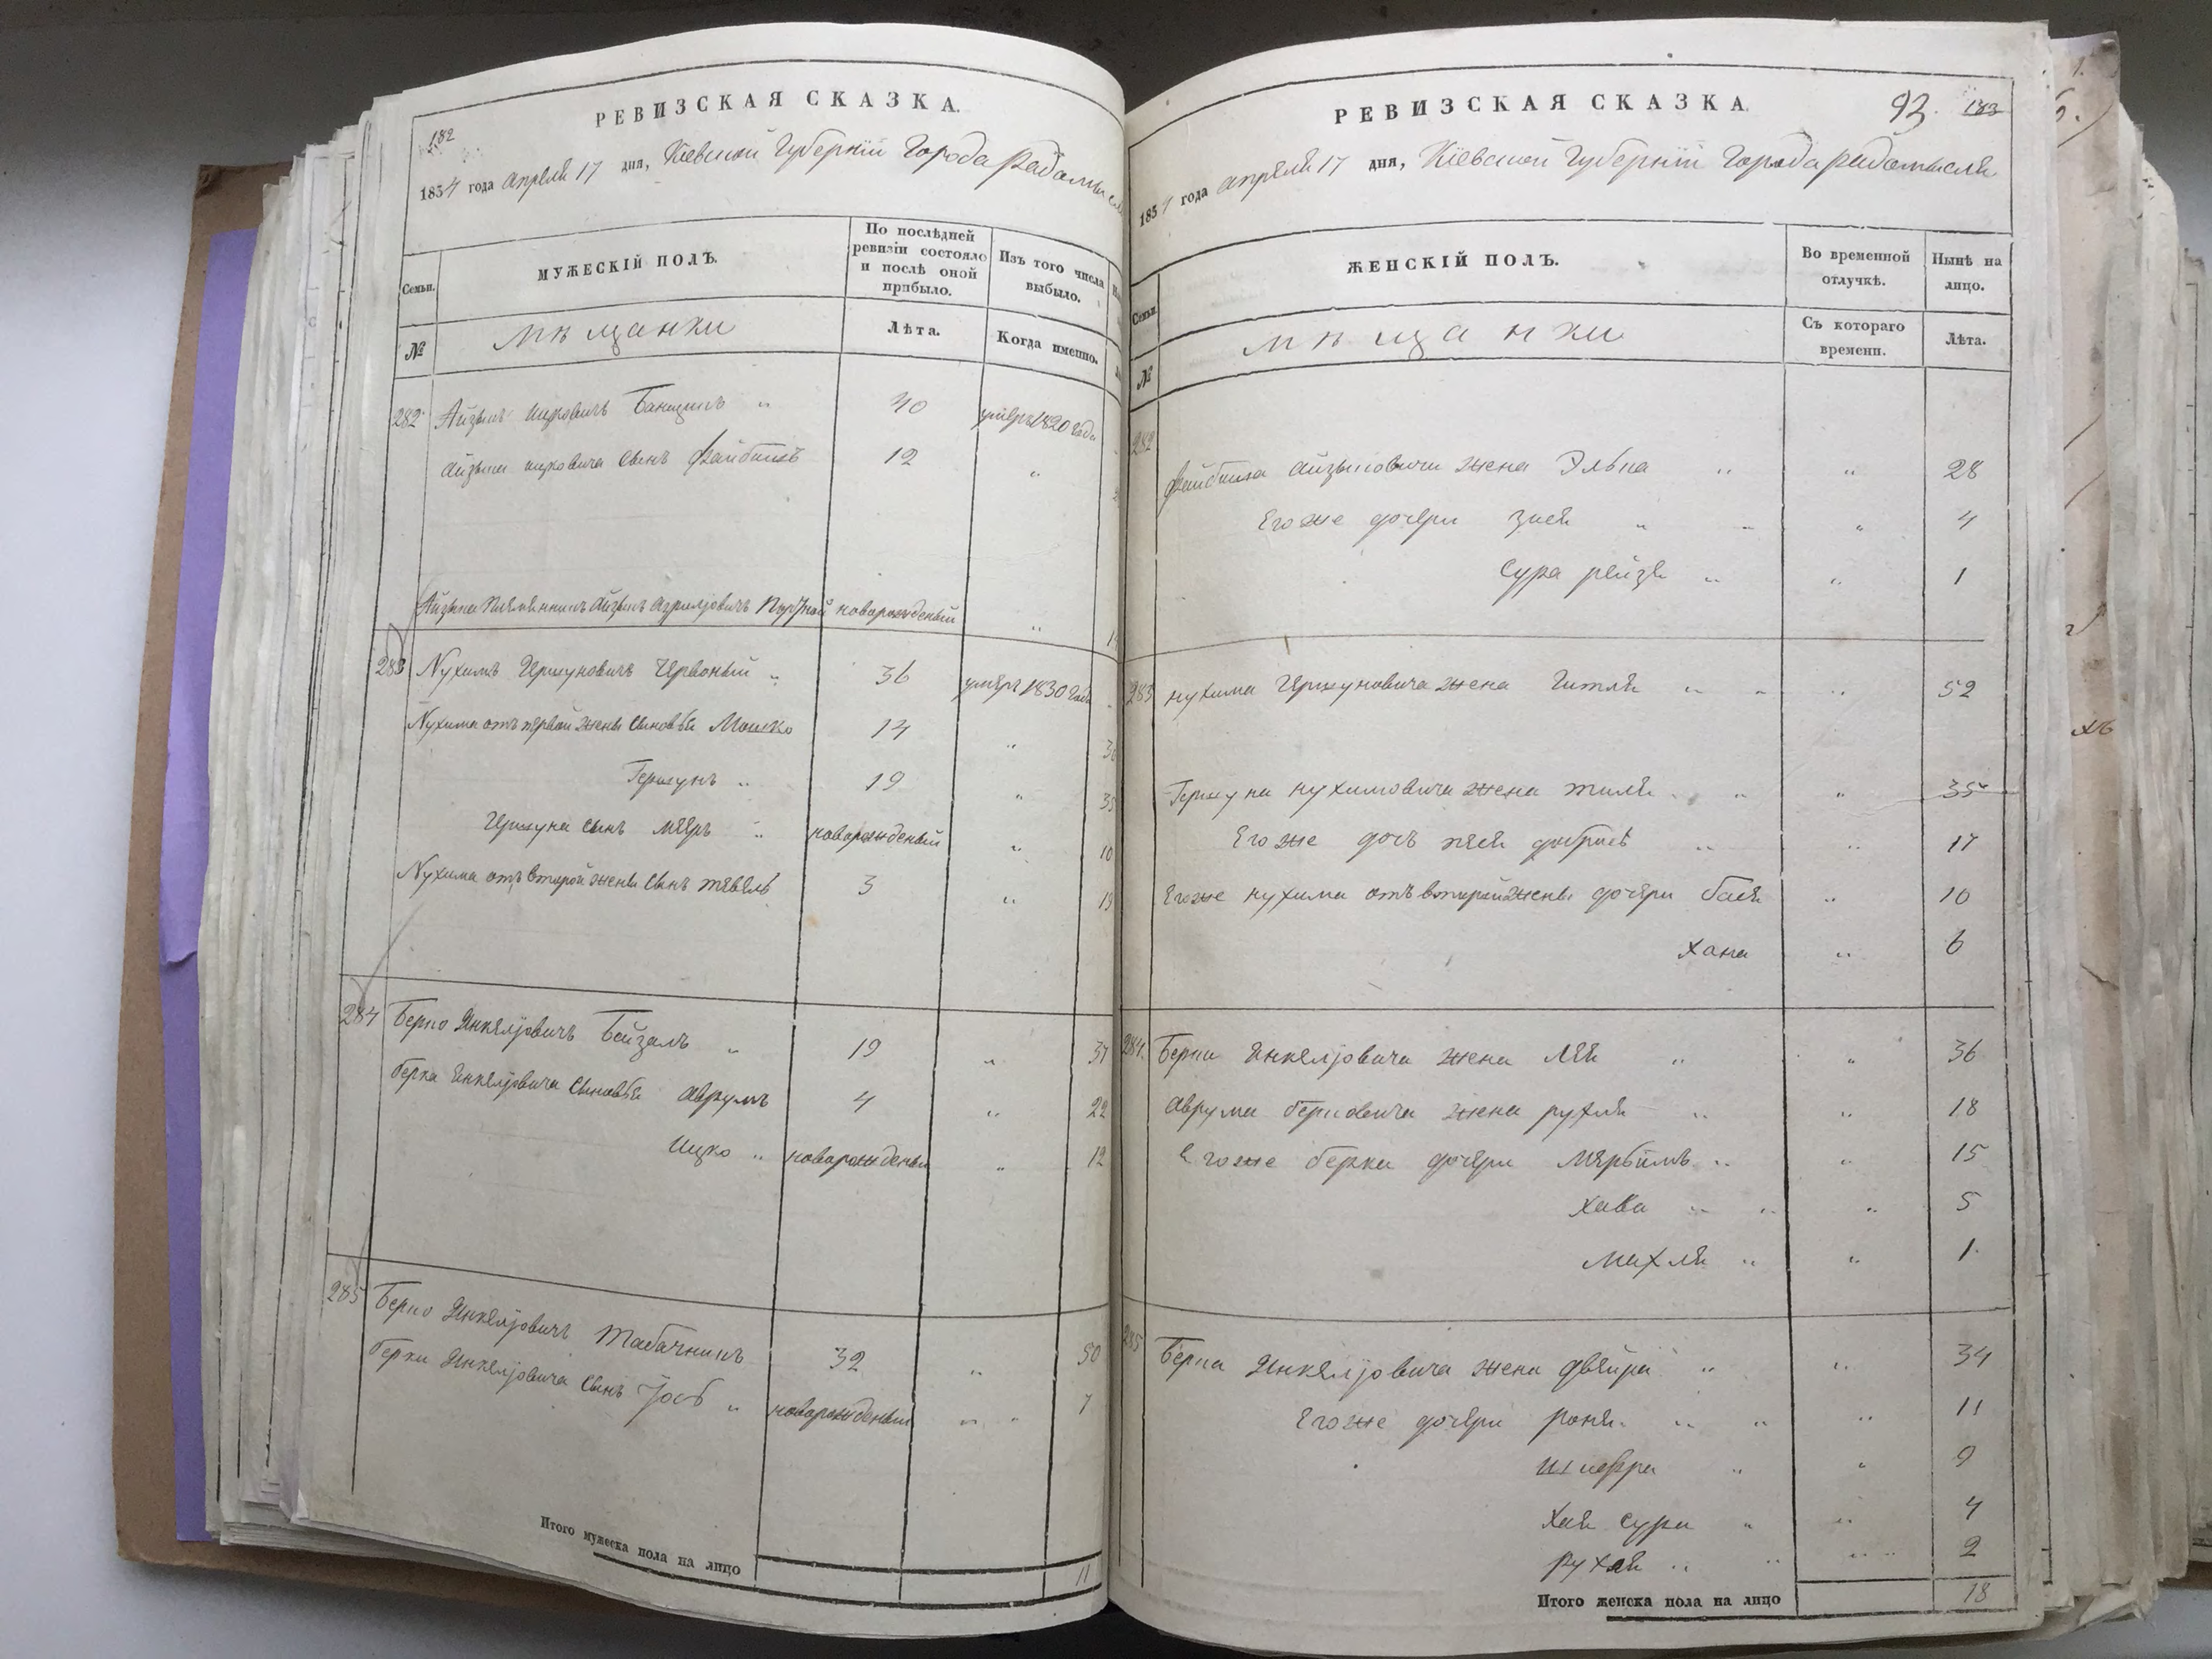 РЕВИЗСКАЯ СКАЗКА.
182
1834 года апреля 17 дня, Кіевской Губерніи Города Радомысля
Семьи.
МУЖЕСКІЙ ПОЛЪ.
По послѣдней ревизіи состояло и послѣ оной прибыло.
Изъ того числа выбыло.
№
мѣщанки
Лѣта.
Когда именно.
282 Айзыкъ Ицковичъ " 40 умеръ 1820 года
Айзыка Ицковича сынъ Файбишъ 12 "
Айзыка племянникъ Айзыкъ новорожденый "
283 Нухимъ Гершуновичъ Червоный " 36 умеръ 1830 года
Нухима отъ первой жены сыновья Мошко 14 "
Гершунъ " 19 "
Гершуна сынъ Мееръ " новорожденый " 10
Нухима отъ второй жены сынъ Тевель 3 " 19
284 Берко Янкеліовичъ " 19 "
Берка Янкеліовича сыновья Аврумъ 4 " 22
Ицко " новорожденый " 12
285 Берко Янкеліовичъ Табачникъ 32 " 50
Берки Янкеліовича сынъ Іосъ " новорожденый " " 7
Итого мужеска пола на лицо 11
РЕВИЗСКАЯ СКАЗКА.
93. 183
1834 года апреля 17 дня, Кіевской Губерніи Города Радомысля
Семьи.
ЖЕНСКІЙ ПОЛЪ.
Во временной отлучкѣ.
Нынѣ на лицо.
№
мѣщанки
Съ котораго времени.
Лѣта.
282
Файбиша Айзыковича жена Элька " " 28
Его же дочери Зися " " " 4
Сура Рейзя " " 1
283 Нухима Гершуновича жена Гитля " " " 52
Гершуна Нухимовича жена " " " 35
Его же дочъ Песя " " 17
Его же Нухима отъ второй жены дочери Бася " 10
Хана " 6
284. Берки Янкеліовича жена Лея " " 36
Аврума Берковича жена Рухля " " 18
Его же Берки дочери Мерьямъ " " 15
Хава " " " 5
Махля " " 1.
285 Берка Янкеліовича жена Двейра " " 34
Его же дочери Роня " " " 11
Шифра " " 9
Хая Сура " " 4
Рухля " " " " 2
Итого женска пола на лицо 18